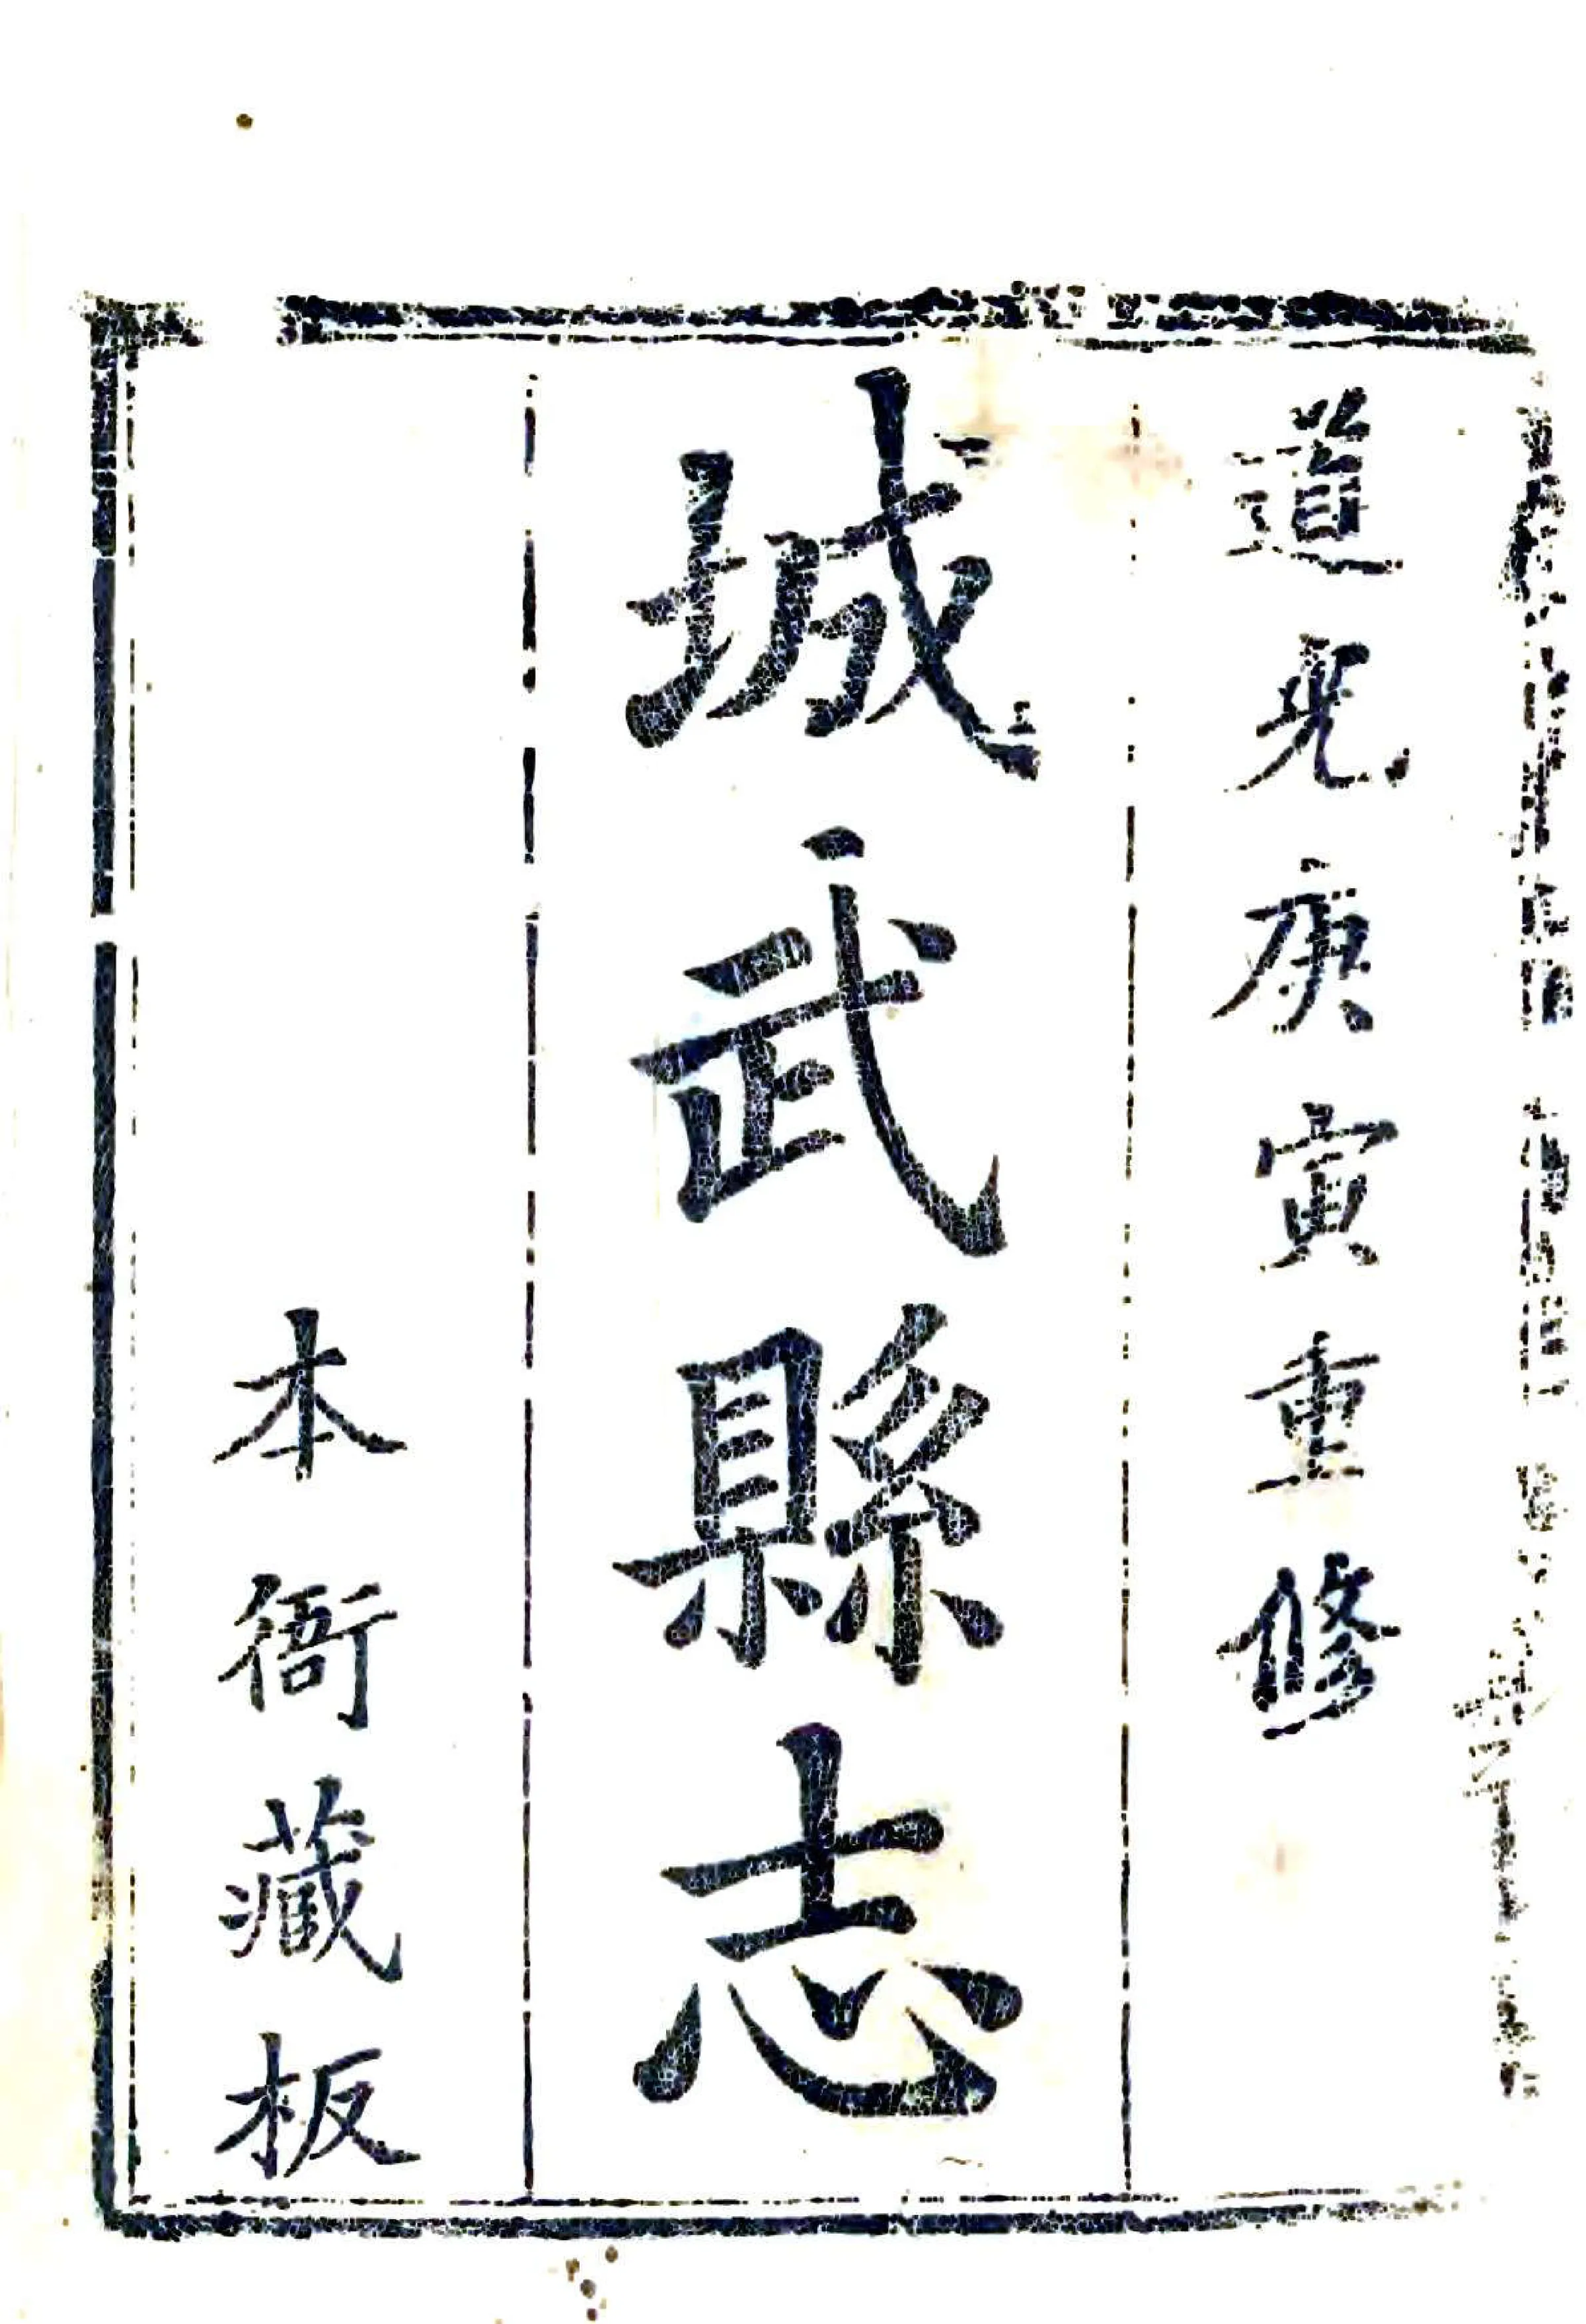 道光庚寅重修
城武縣志
本衙藏板